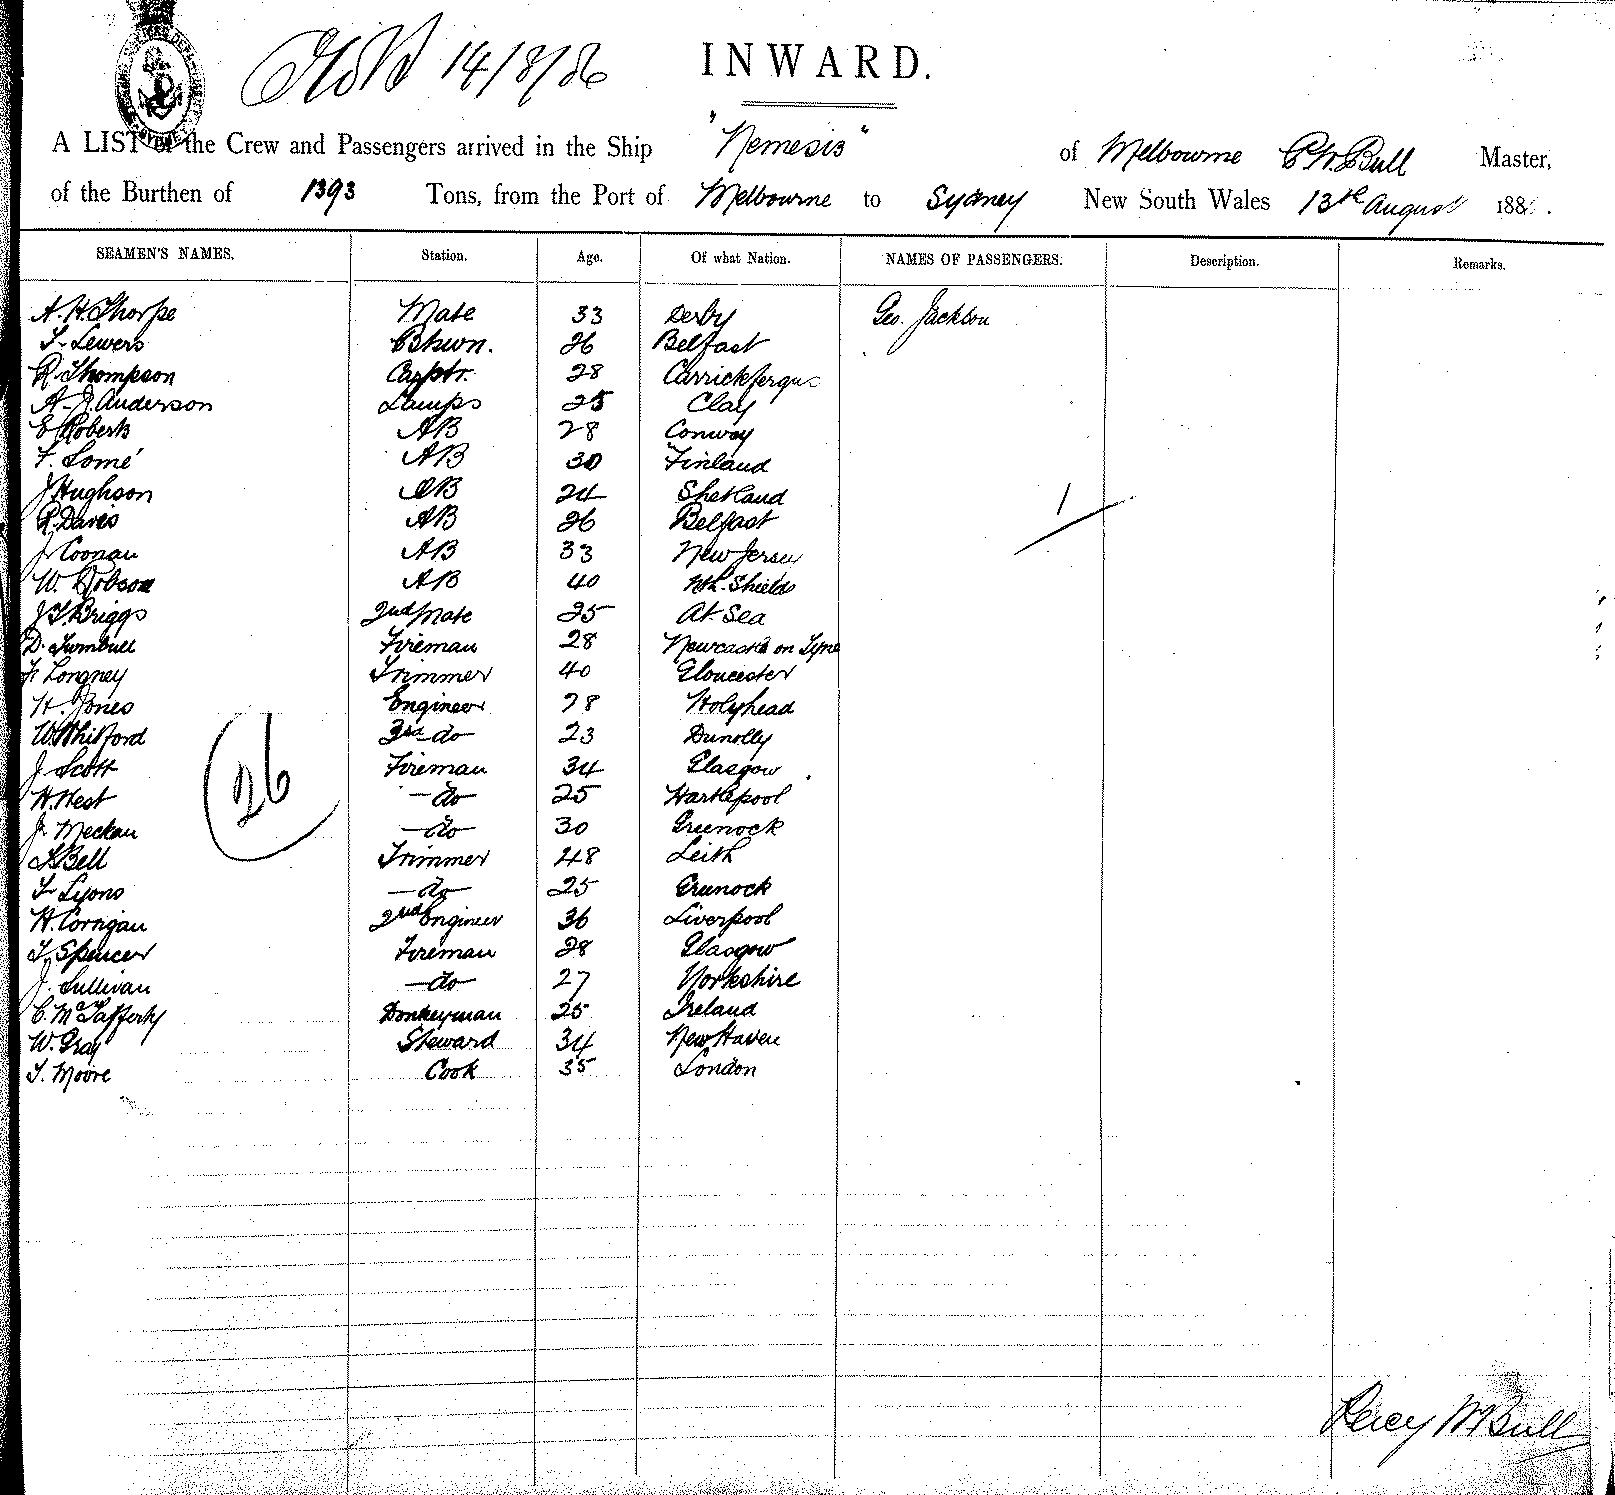 14/8/86
INWARD.
A LIST of the Crew and Passengers arrived in the Ship "Nemesis" of Melbourne P W Bull Master,
of the Burthen of 1393 Tons, from the Port of Melbourne to Sydney New South Wales 13th August 188 .
SEAMEN'S NAMES. Station. Age. Of what Nation. NAMES OF PASSENGERS. Description. Remarks.
A. H. Thorpe Mate 33 Derby Geo. Jackson
T. Lewers Btswn. 26 Belfast
R. Thompson Carptr. 28 Carrickfergus
A. J. Anderson Lamps 25 Clay
E Roberts AB 28 Conway
F. Lomé AB 30 Finland
J Hughson AB 24 Shetland
R. Davis AB 26 Belfast
J. Coonan AB 33 New Jersey
W. Robson AB 40 Nth. Shields
J T. Briggs 2nd Mate 25 At Sea
D. Turnbull Fireman 28 Newcastle on Tyne
F. Longney Trimmer 40 Gloucester
H. Jones Engineer 28 Holyhead
W. Whitford 3rd do 23 Dunolly
J. Scott Fireman 34 Glasgow
H. West do 25 Hartlepool
J. Meckan do 30 Greenock
T. Bell Trimmer 48 Leith
T. Lyons do 25 Greenock
H. Corrigan 2nd Engineer 36 Liverpool
T. Spencer Fireman 28 Glasgow
J. Sullivan do 27 Yorkshire
C. McTafferty Donkeyman 25 Ireland
W. Gray Steward 34 New Haven
T. Moore Cook 35 London
1
26
Percy W Bull